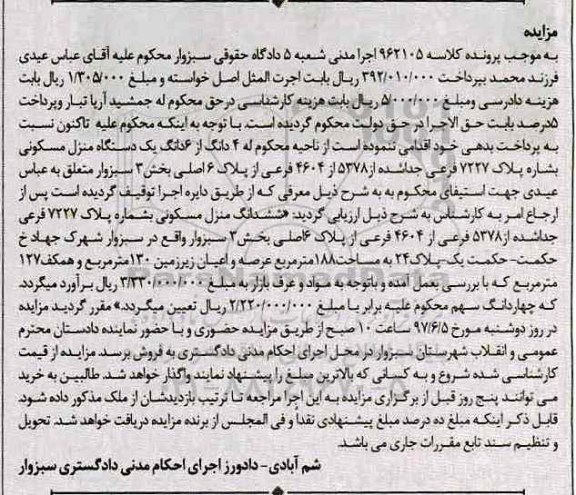 مزایده
به موجب پرونده کلاسه ۹۶۲۱۰۵ اجرا مدنی شعبه ۵ دادگاه حقوقی سبزوار محکوم علیه آقای عباس عیدی
فرزند محمد بپرداخت ۳۹۲/۰۱۰/۰۰۰ ریال بابت اجرت المثل اصل خواسته و مبلغ ۱/۳۰۵/۰۰۰ ریال بابت
هزینه دادرسی ومبلغ ۵/۰۰۰/۰۰۰ ریال بابت هزینه کارشناسی درحق محکوم له جمشید آریا تبار وپرداخت
۵درصد بابت حق الاجرا در حق دولت محکوم گردیده است. با توجه به اینکه محکوم علیه تاکنون نسبت
به پرداخت بدهی خود اقدامی ننموده است از ناحیه محکوم له ۴ دانگ از ۶دانگ یک دستگاه منزل مسکونی
بشاره پلاک ۷۲۲۷ فرعی جداشده از۵۳۷۸ از ۴۶۰۴ فرعی از پلاک ۶ اصلی بخش۳ سبزوار متعلق به عباس
عیدی جهت استیفای محکوم به به شرح ذیل معرفی که از طریق دایره اجرا توقیف گردیده است پس از
ارجاع امر به کارشناس به شرح ذیل ارزیابی گردید: «ششدانگ منزل مسکونی بشماره پلاک ۷۲۲۷ فرعی
جداشده از۵۳۷۸ فرعی از ۴۶۰۴ فرعی از پلاک ۶اصلی بخش۳ سبزوار واقع در سبزوار شهرک جهاد خ
حکمت- حکمت یک-پلاک۲۴ به مساحت۱۸۸مترمربع عرصه و اعیان زیرزمین ۱۳۰مترمربع و همکف۱۲۷
مترمربع که با بررسی بعمل آمده و باتوجه به مواد و عرف بازار به مبلغ ۳/۳۳۰/۰۰۰/۰۰۰ ریال برآورد میگردد.
که چهاردانگ سهم محکوم علیه برابر با مبلغ ۲/۲۲۰/۰۰۰/۰۰۰ ریال تعیین میگردد.» مقرر گردید مزایده
در روز دوشنبه مورخ ۹۷/۶/۵ ساعت ۱۰ صبح از طریق مزایده حضوری و با حضور نماینده دادستان محترم
عمومی و انقلاب شهرستان سبزوار در محل اجرای احکام مدنی دادگستری به فروش برسد مزایده از قیمت
کارشناسی شده شروع و به کسانی که بالاترین مبلغ را پیشنهاد نمایند واگذار خواهد شد. طالبین به خرید
می توانند پنج روز قبل از برگزاری مزایده به این اجرا مراجعه تا ترتیب بازدیدشان از ملک مذکور داده شود.
قابل ذکر اینکه مبلغ ده درصد مبلغ پیشنهادی نقداً و فی المجلس از برنده مزایده دریافت خواهد شد. تحویل
و تنظیم سند تابع مقررات جاری می باشد.
شم آبادی- دادورز اجرای احکام مدنی دادگستری سبزوار